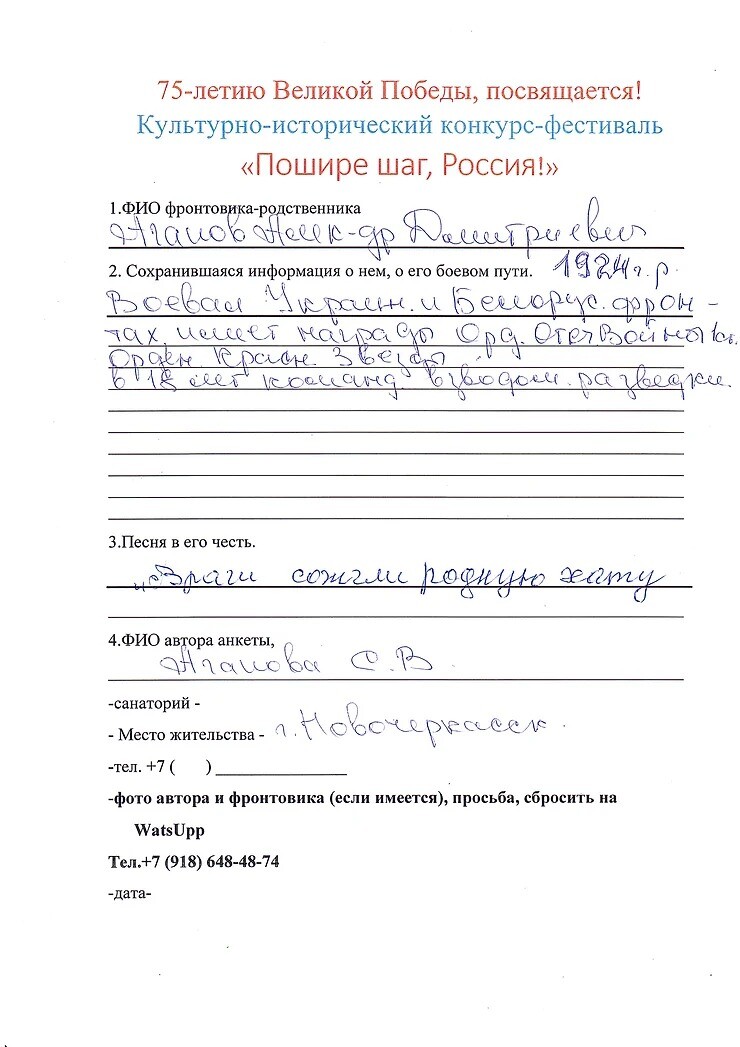 75-летию Великой Победы, посвящается!
Культурно-исторический конкурс-фестиваль
«Пошире шаг, Россия!»
1.ФИО фронтовика-родственника
Агапов Алек-др Дмитриевич
2. Сохранившаяся информация о нем, о его боевом пути. 1924 г. р.
Воевал Украин. и Белорус. фрон-
тах, имеет награды Орд. Отеч Войны 1 ст.
Орден Красн. Звезды
в 18 лет команд. взводом разведки.
3.Песня в его честь.
„Враги сожгли родную хату
4.ФИО автора анкеты,
Агапова С. В
-санаторий -
- Место жительства - г. Новочеркасск.
-тел. +7 ( ) _______________
-фото автора и фронтовика (если имеется), просьба, сбросить на
WatsUpp
Тел.+7 (918) 648-48-74
-дата-